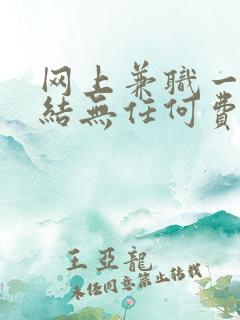 网上兼職一
結無任何費
王亞龍
未经同意禁止转载